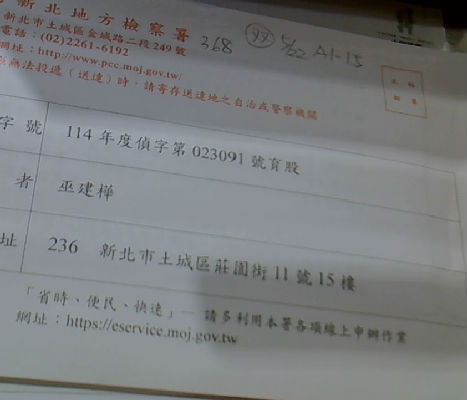 新北地方檢察署
新北市土城區金城路二段249號
電話：(02)2261-6192
網址：http://www.pcc.moj.gov.tw/
無法投遞（送達）時，請寄存送達地之自治或警察機關
368 99 5/22 A1-15
字號 114 年度偵字第 023091 號育股
者 巫建樺
址 236 新北市土城區莊園街 11 號 15 樓
「省時、便民、快速」— 請多利用本署各項線上申辦作業
網址：https://eservice.moj.gov.tw